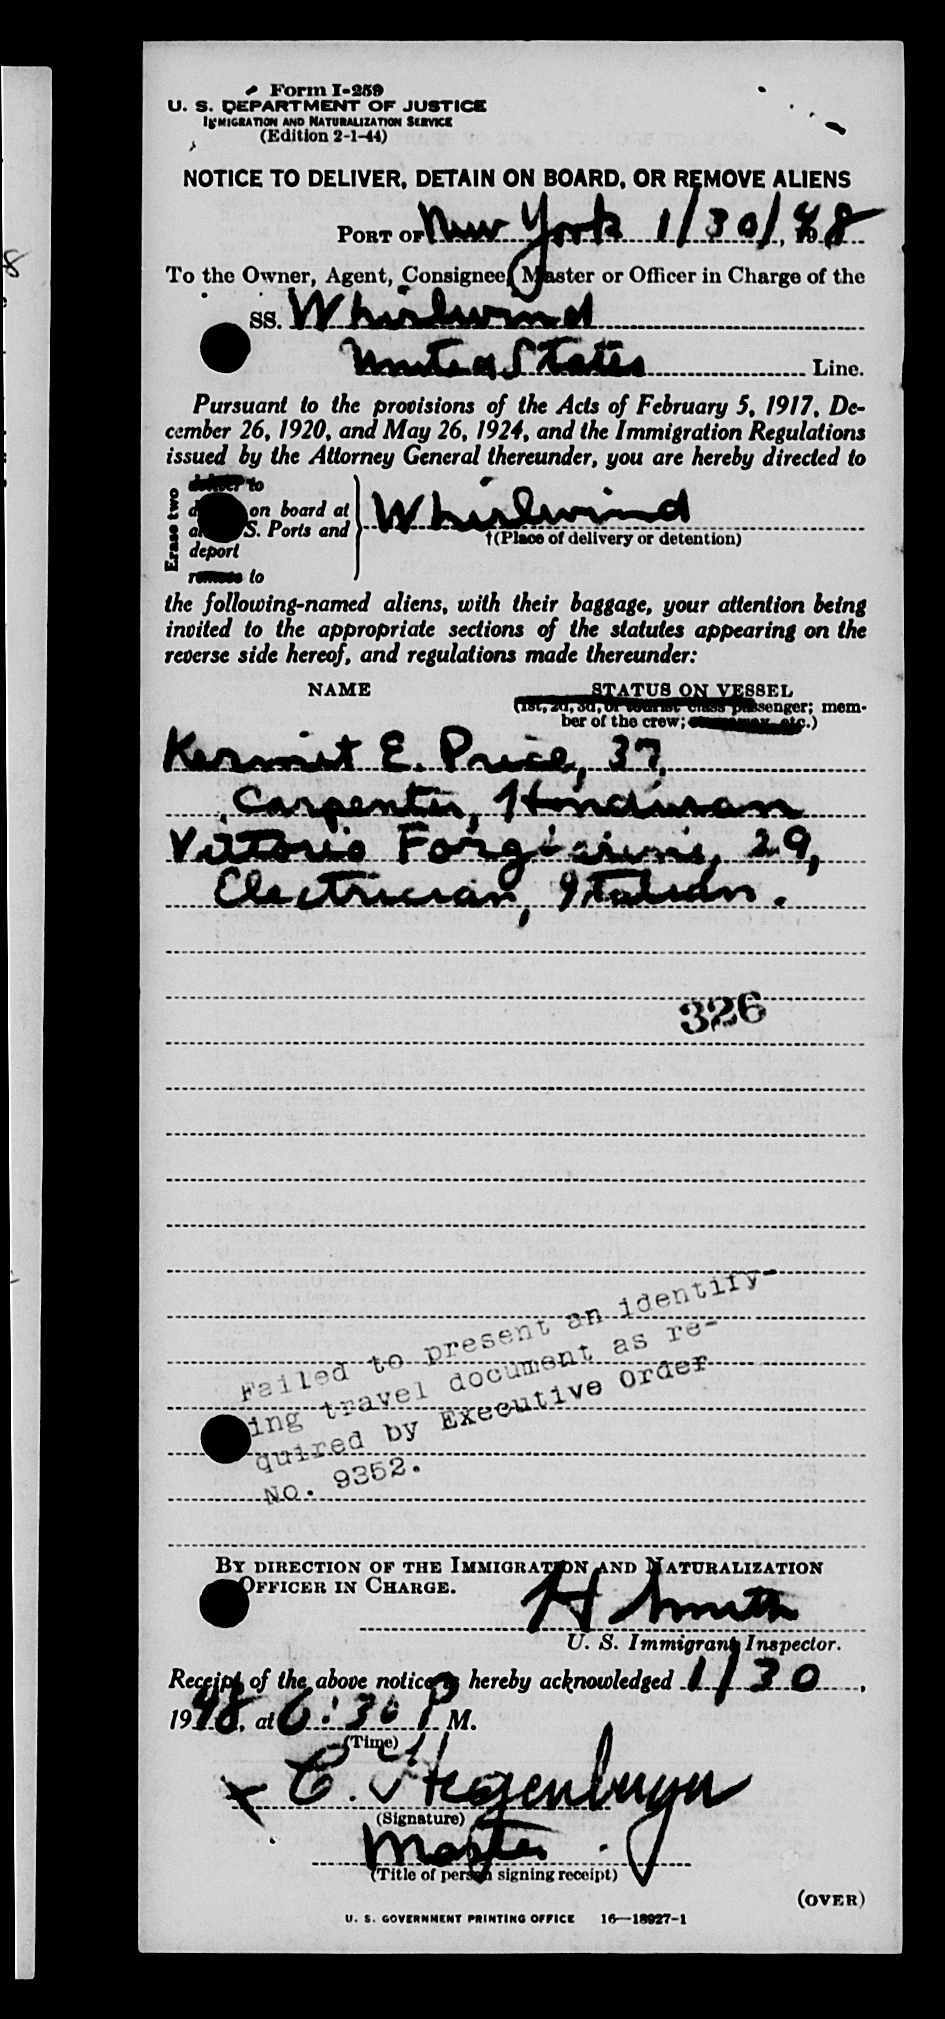 Form I-259
U. S. DEPARTMENT OF JUSTICE
IMMIGRATION AND NATURALIZATION SERVICE
(Edition 2-1-44)
NOTICE TO DELIVER, DETAIN ON BOARD, OR REMOVE ALIENS
PORT OF New York 1/30/, 1948
To the Owner, Agent, Consignee, Master or Officer in Charge of the
SS. Whirlwind
United States Line.
Pursuant to the provisions of the Acts of February 5, 1917, De-
cember 26, 1920, and May 26, 1924, and the Immigration Regulations
issued by the Attorney General thereunder, you are hereby directed to
Erase two
deliver to
on board at
S. Ports and
deport
remove to
Whirlwind
†(Place of delivery or detention)
the following-named aliens, with their baggage, your attention being
invited to the appropriate sections of the statutes appearing on the
reverse side hereof, and regulations made thereunder:
NAME STATUS ON VESSEL
(1st, 2d, 3d, or tourist class passenger; mem-
ber of the crew; etc.)
Kermit E. Price, 37,
Carpenter, Honduran
Vittorio Forgiarini, 29,
Electrician, Italian.
326
Failed to present an identify-
ing travel document as re-
quired by Executive Order
No. 9352.
BY DIRECTION OF THE IMMIGRATION AND NATURALIZATION
OFFICER IN CHARGE.
H Smith
U. S. Immigrant Inspector.
Receipt of the above notice is hereby acknowledged 1/30,
1948, at 6:30 P M.
(Time)
x C. Hegenberger
(Signature)
Master
(Title of person signing receipt)
(OVER)
U. S. GOVERNMENT PRINTING OFFICE 16—18927-1